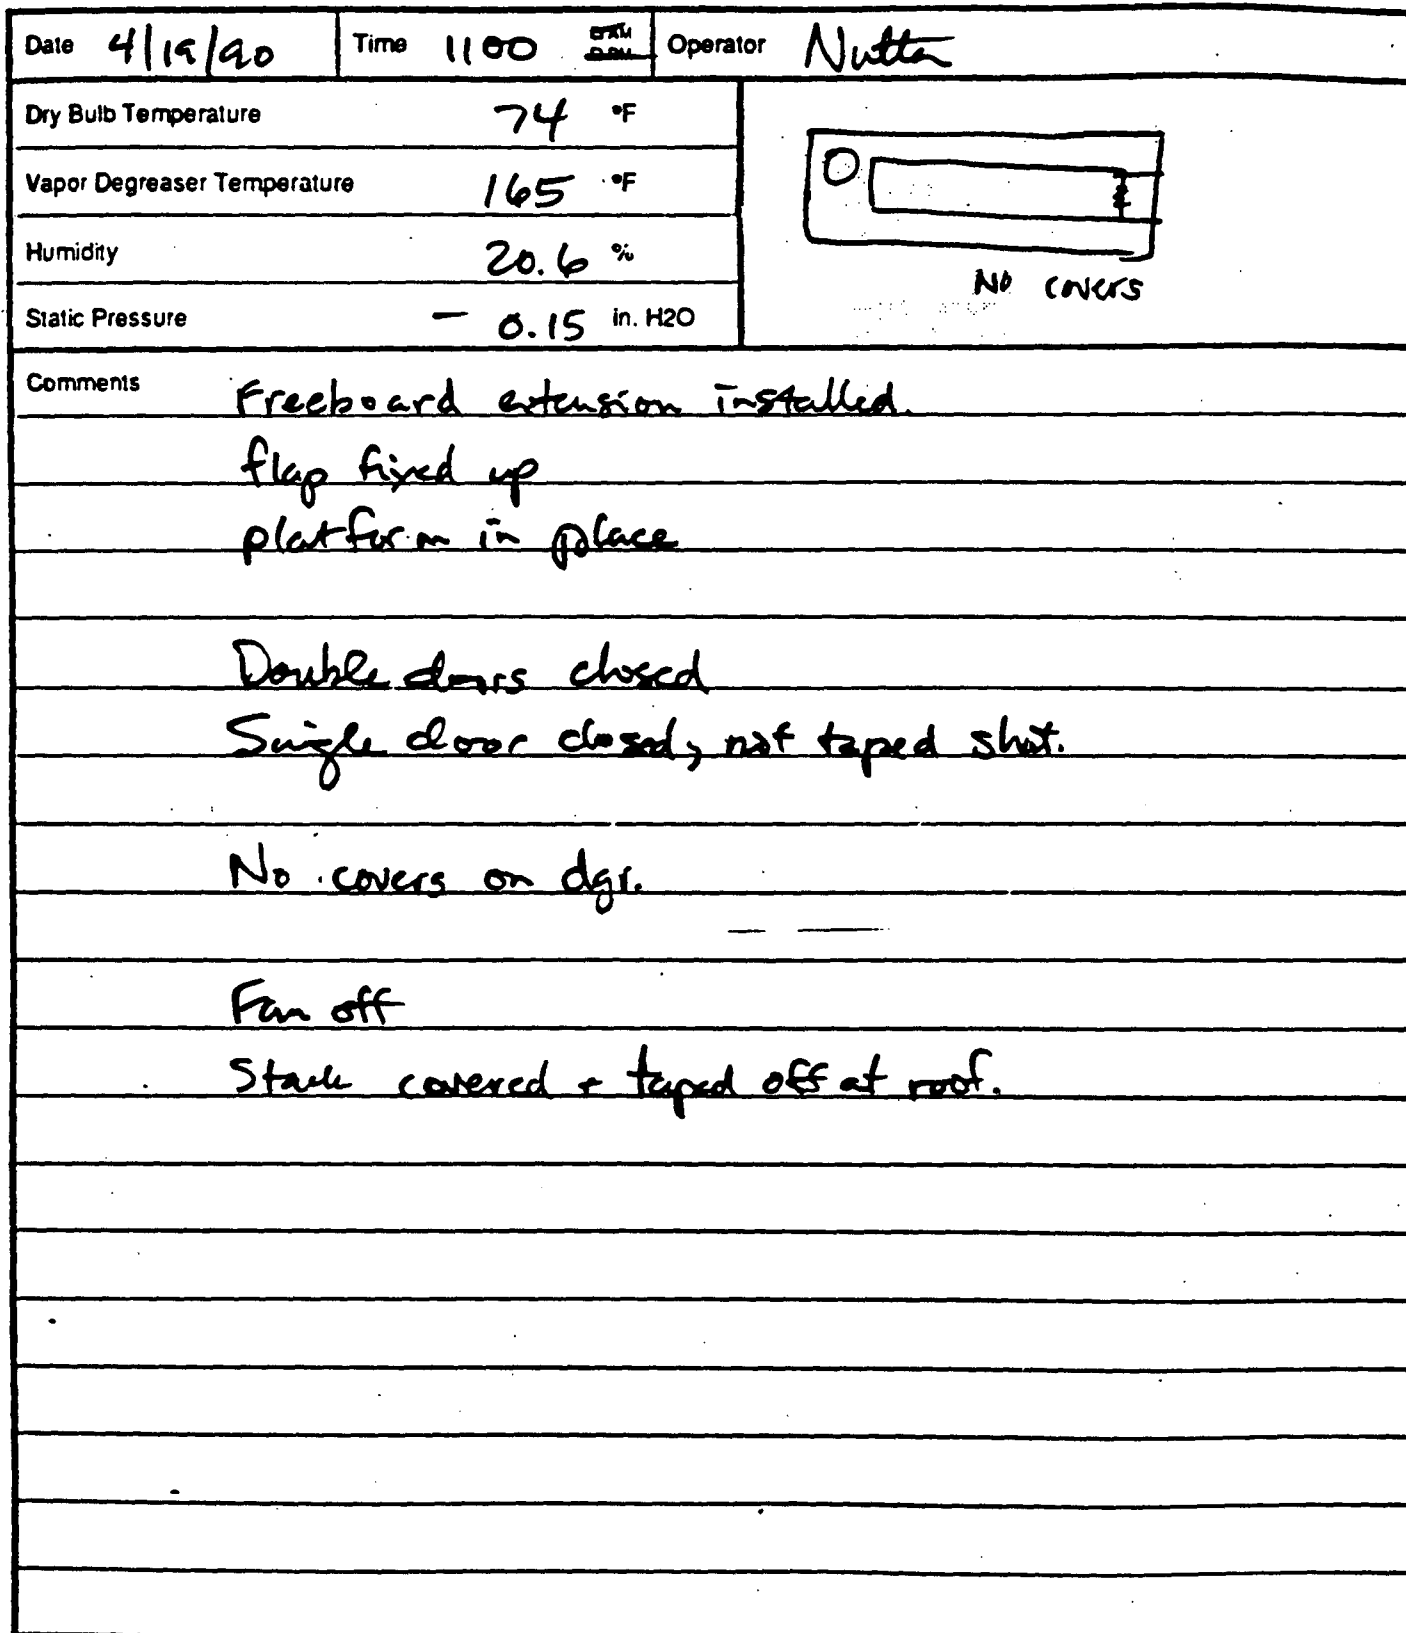 Date 4/19/90 Time 1100 AM PM Operator Nutter
Dry Bulb Temperature 74 °F
Vapor Degreaser Temperature 165 °F
Humidity 20.6 %
Static Pressure - 0.15 in. H2O
No covers
Comments Freeboard extension installed.
flap fixed up
platform in place
Double doors closed
Single door closed, not taped shut.
No covers on dgr.
Fan off
Stack covered + taped off at roof.